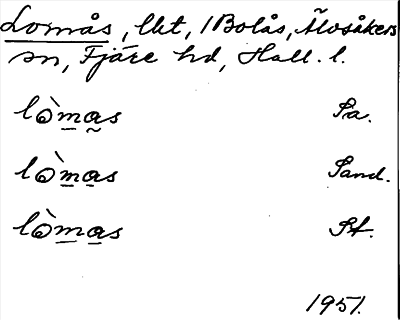 Lomås, lkt, /Bolås, Älvsåkers
sn, Fjäre hd, Hall. l.
lòmas Sa.
lòmas Sand.
lòmas St.
1951.